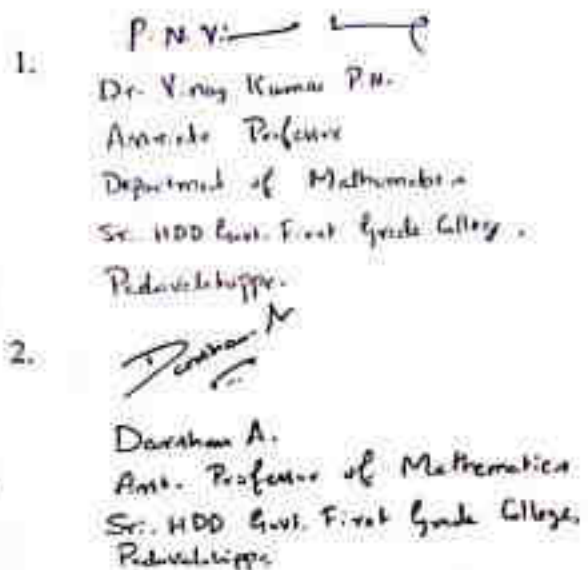 1.
P. N. Vi
Dr. Vinay Kumar P.N.
Associate Professor
Department of Mathematics
Sri. HDD Govt. First Grade College,
Paduvalahippe.
2.
Darshan A
Darshan A.
Asst. Professor of Mathematics
Sri. HDD Govt. First Grade College,
Paduvalahippe